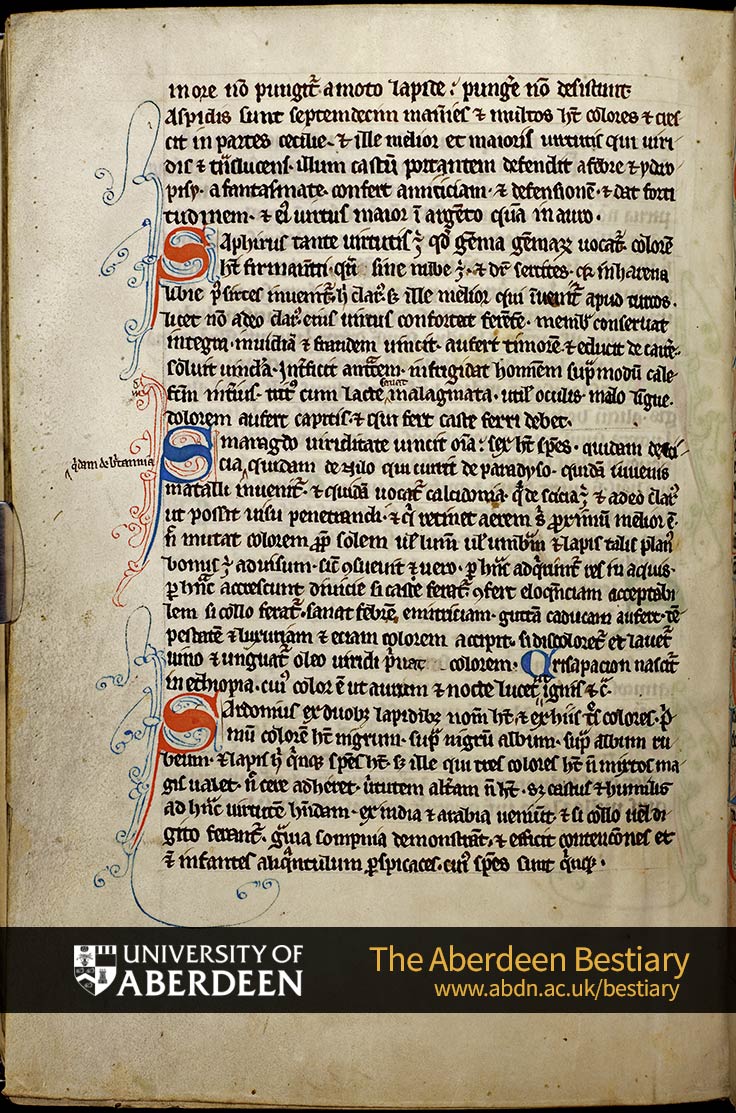 in ore nō pungit᷑ amoto lapide: pungẽ nō desistunt
Aspidis sunt septemdecim man̄ies & multos h̄t colores & cres
cit in partes cecilie & ille melior et maioris uirtutis qui uiri
dis & t̄nslucens. illum castū portantem defendit a febre & ydro
pisy. a fantasmate. confert amiciciam & defensionē & dat forti
tudinem & ei uirtus maior ī argēto quā in auro.
Saphirus tante uirtutis ÷ qd gēma gēmaꝝ uocat᷑. colorē
h̄t firmam̄ti. qn̄ sine nube ÷. & dr̄ in harena
libie ille melior qui īuenit᷑ apud turcos.
lucet nō adeo clar᷑ eius uirtus confortat memb᷑ conseruat
integra. inuidiā & fraudem uincit. aufert timorē & educit de carc᷑e.
soluit uincla. infrigidat hominem sup̄ modū cale
cum lacte sanat malagmata. util᷑ oculis. malo ligue.
dolorem aufert capitis. & qui fert caste ferri debet.
Smaragdo uiriditate uincit oīa: sex h̄t sp̄es. quidam de sci
qdam de b᷑tannia
cia quidam de nilo qui currit de paradyso. quidā in uenis
metalli inuenit᷑. & quidā uocat᷑ calcidonia. & adeo clar᷑
ut possit uisu penetrari. & q̄ retinet aerem s᷑ proximū melior ē.
n̄ mutat colorem ꝓp solem uł lum̄ uł umbrā & lapis talis plan᷑
bonus ÷ ad uisum. sic̄ ꝯsueuit & uero. ꝑ h̄nc adq̄runt᷑ res in aquis.
ꝑ h̄nc accrescunt diuicie si caste ferat᷑. ꝯfert eloqn̄ciam acceptabi
lem si collo ferat᷑. sanat febrē. emitriciam. guttā caducam aufert. tē
pestatē & luxuriam & eciam colorem accipit. si discoloret᷑ et lauet᷑
uino & unguat᷑ oleo uiridi colorem. Crisapacion nascit᷑
in ethiopia. cui᷑ color ē ut aurum & nocte lucet ignis &c̄.
Sardonius ex duob᷑ lapidib᷑ nom̄ h̄t & ex hiis t᷑s colores. p̄
mū colorē h̄t nigrum. sup̄ nigrū album. sup̄ album ru
beum. & lapis ÿ q̄nq̄ sp̄es h̄t. & ille qui tres colores h̄t n̄ mixtos ma
gis ualet. n̄ cere adheret. uirtutem alt᷑am n̄ h̄t. s᷑ castus & humilis
ad h̄nc uirtutē h̄ndam. ex india & arabia ueniūt. & si collo uel di
gito ferant᷑. g᷑uia sompnia demonstrāt. & efficit contencōnes et
÷ infantes aliq̄ntulum ꝑspicaces. cui᷑ sp̄es sunt q̄nq̄.
UNIVERSITY OF
ABERDEEN
The Aberdeen Bestiary
www.abdn.ac.uk/bestiary